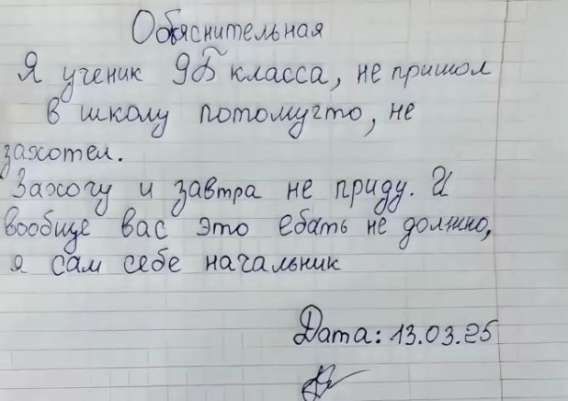 Обяснительная
Я ученик 9Б класса, не пришол
в школу потомучто, не
захотел.
Захочу и завтра не приду. И
вообще вас это ебать не должно,
я сам себе начальник
Дата: 13.03.25